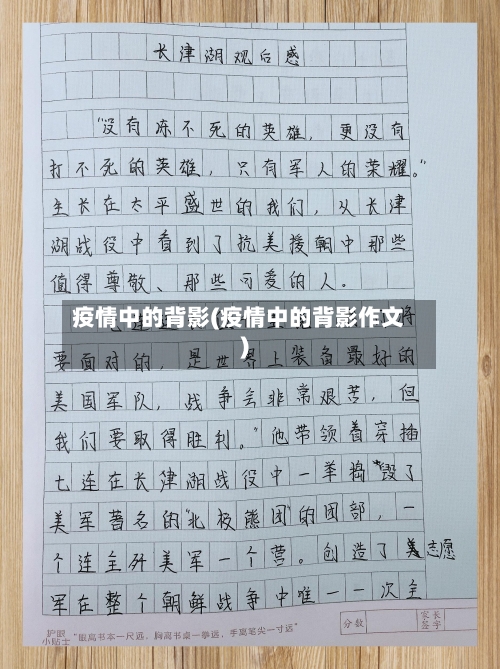 长津湖观后感
"没有冻不死的英雄，更没有
打不死的英雄，只有军人的荣耀。"
生长在太平盛世的我们，从长津
湖战役中看到了抗美援朝中那些
值得尊敬、那些可爱的人。
疫情中的背影(疫情中的背影作文
)
将
要面对的，是世界上装备最好的
美国军队，战争会非常艰苦，但
我们要取得胜利。"他带领着穿插
七连在长津湖战役中一举捣毁了
美军著名的"北极熊团"的团部，一
个连全歼美军一个营。创造了志愿
军在整个朝鲜战争中唯一一次全
护眼
小贴士
"眼离书本一尺远，胸离书桌一拳远，手离笔尖一寸远"
分数
家长
签字